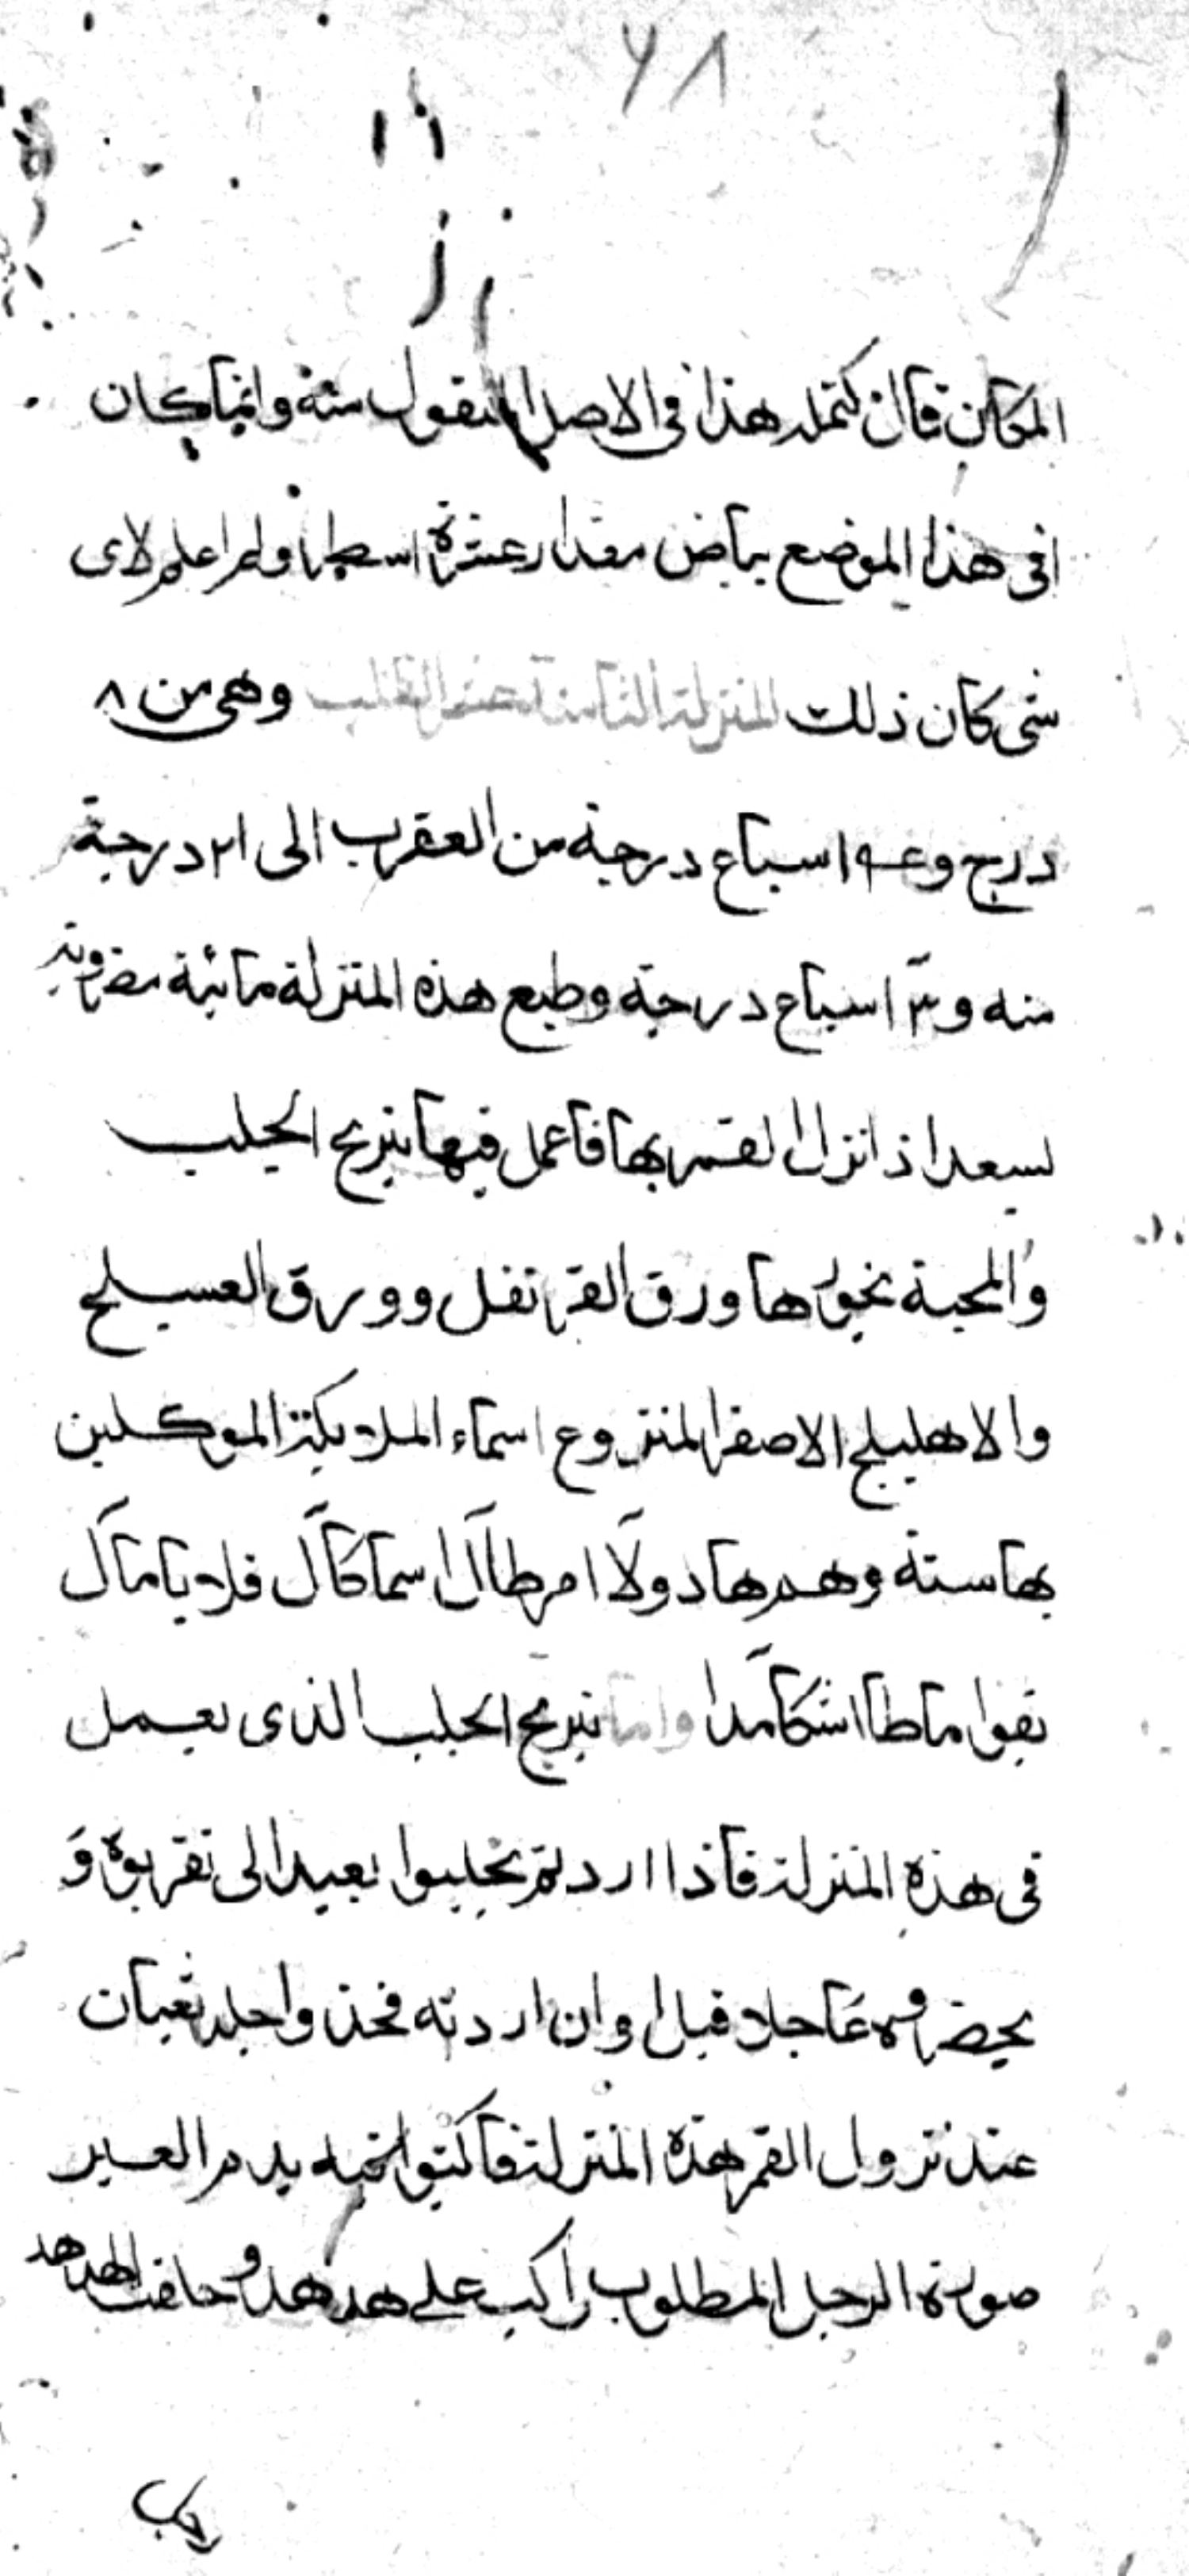 ٦٨
المكان قال كتمله هذا في الاصل المنقول منه وانما كان
في هذا الموضع بياض مقدار عشرة اسطر ولم اعلم لاى
شى كان ذلك المنزلة الثامنة عشر القلب وهى من ٨
درج و ٤ اسباع درجة من العقرب الى ٢١ درجة
منه و ٣ اسباع درجة وطبع هذه المنزلة مائية مقرونة
لسعد اذا نزل القمر بها فاعمل فيها نيرنج الجلب
والمحبة بخورها ورق القرنفل وورق العسيلج
والاهليلج الاصفر المنزوع اسماء الملايكة الموكلين
بها ستة وهم هادولا امهطاال اسماكال فلايامال
بقوا ماطاا شكامدا واما نيرنج الجلب الذى يعمل
فى هذه المنزلة فاذا اردتم تجلبوا بعيدا الى تقربوه و
يحضروه عاجلا فبلا وان اردته فخذوا جلد ثعبان
عند نزول القمر هذه المنزلة فاكتبوا فيه بدم العير
صورة الرجل المطلوب راكب على هدهد وحافت الهدهد
راكب